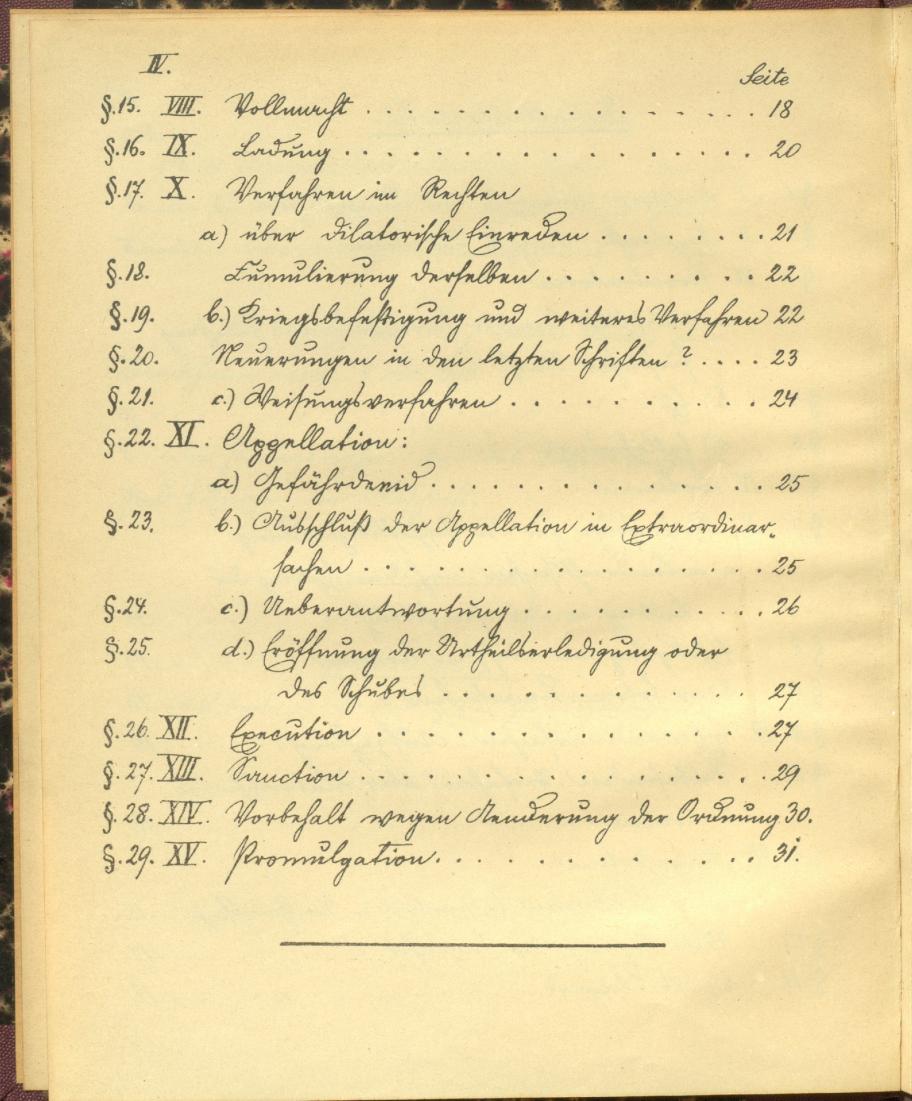 IV.
Seite
§.15. VIII. Vollmacht . . . . . . . . . . . . . . . . 18
§.16. IX. Ladung . . . . . . . . . . . . . . . . . 20
§.17. X. Verfahren im Rechten
a) über dilatorische Einreden . . . . . . . . 21
§.18. Cumulierung derselben . . . . . . . . . 22
§.19. b.) Kriegsbefestigung und weiteres Verfahren 22
§.20. Neuerungen in den letzten Schriften ? . . . . 23
§.21. c.) Weisungsverfahren . . . . . . . . . . 24
§.22. XI. Appellation:
a) Gefährdeneid . . . . . . . . . . . . . . 25
§.23. b.) Ausschluß der Appellation in Extraordinar-
sachen . . . . . . . . . . . . . . . . . 25
§.24. c.) Ueberantwortung . . . . . . . . . . . 26
§.25. d.) Eröffnung der Urtheilserledigung oder
des Schubes . . . . . . . . . . . . . 27
§.26. XII. Execution . . . . . . . . . . . . . . . 27
§.27. XIII. Sanction . . . . . . . . . . . . . . . . 29
§.28. XIV. Vorbehalt wegen Aenderung der Ordnung 30.
§.29. XV. Promulgation . . . . . . . . . . . . 31.